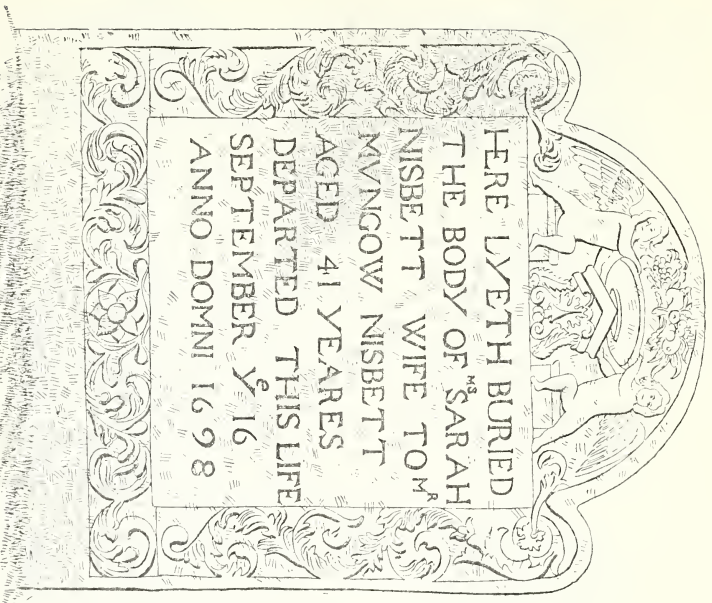 HERE LYETH BURIED
THE BODY OF MS SARAH
NISBETT WIFE TO MR
MVNGOW NISBETT
AGED 41 YEARES
DEPARTED THIS LIFE
SEPTEMBER Ye 16
ANNO DOMNI 1698